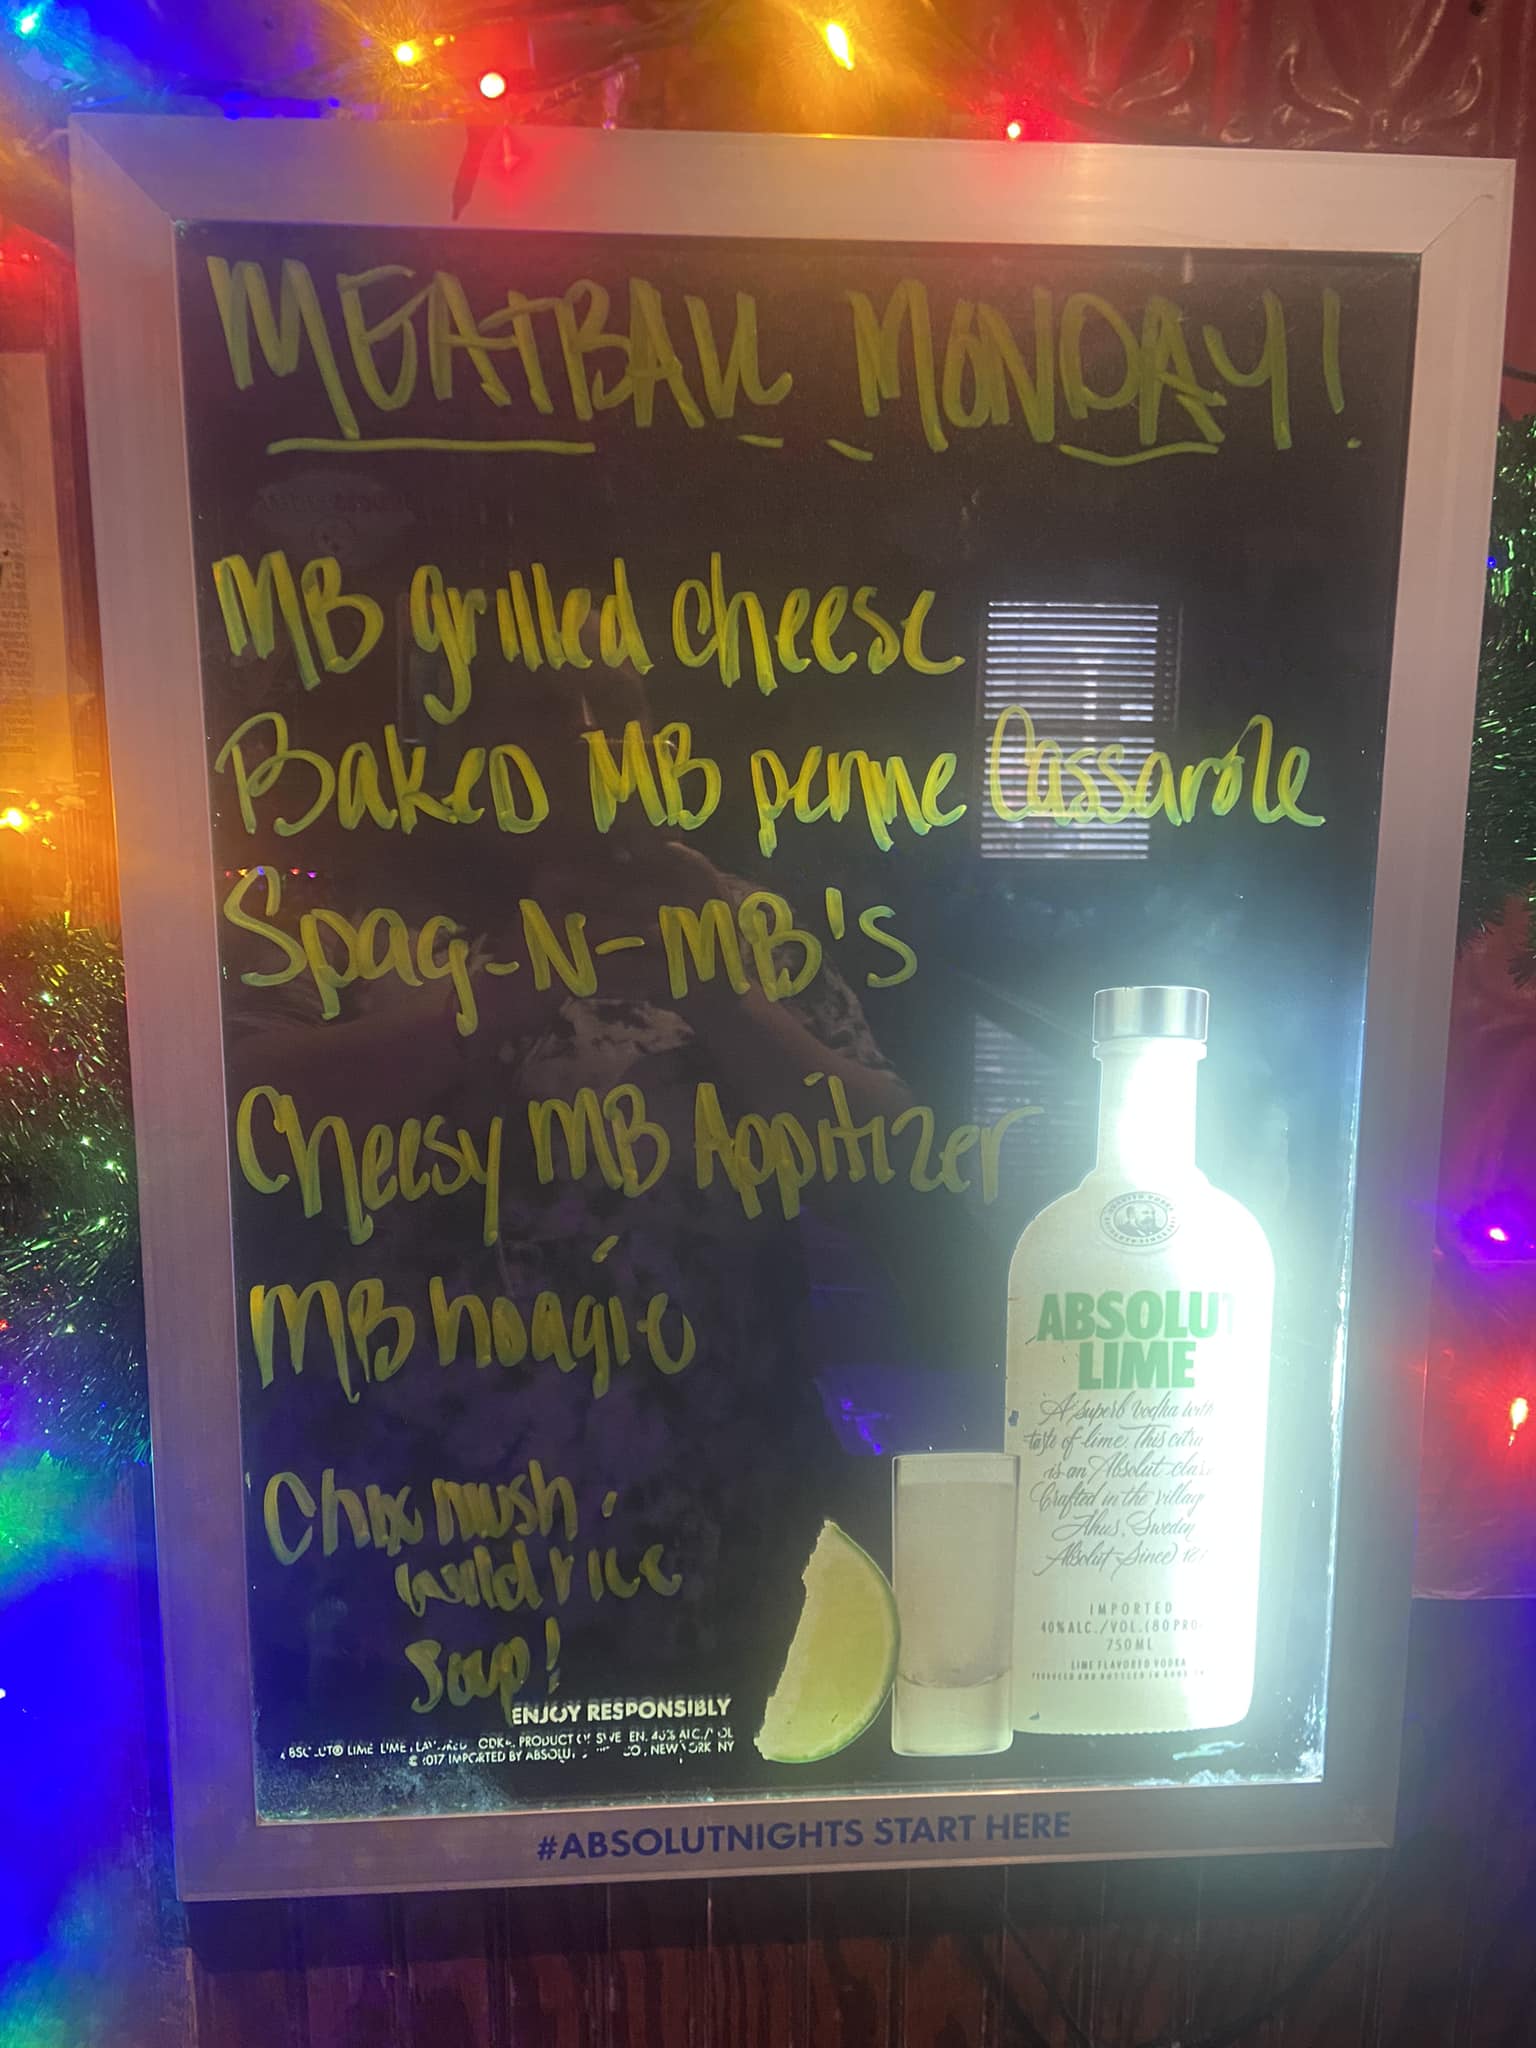 MEATBALL MONDAY!
MB grilled cheese
Baked MB penne Cassarole
Spag-N-MB's
Cheesy MB Appitizer
MB hoagie
Chix mush.
wild rice
Soup!
ABSOLUT
LIME
A superb vodka with
taste of lime. This citru
is an Absolut clas
Crafted in the villag
Åhus, Sweden
Absolut Since 18
IMPORTED
40% ALC./VOL. (80 PRO
750ML
LIME FLAVORED VODKA
ENJOY RESPONSIBLY
LIME PRODUCT
IMPORTED BY NEW YORK NY
#ABSOLUTNIGHTS START HERE